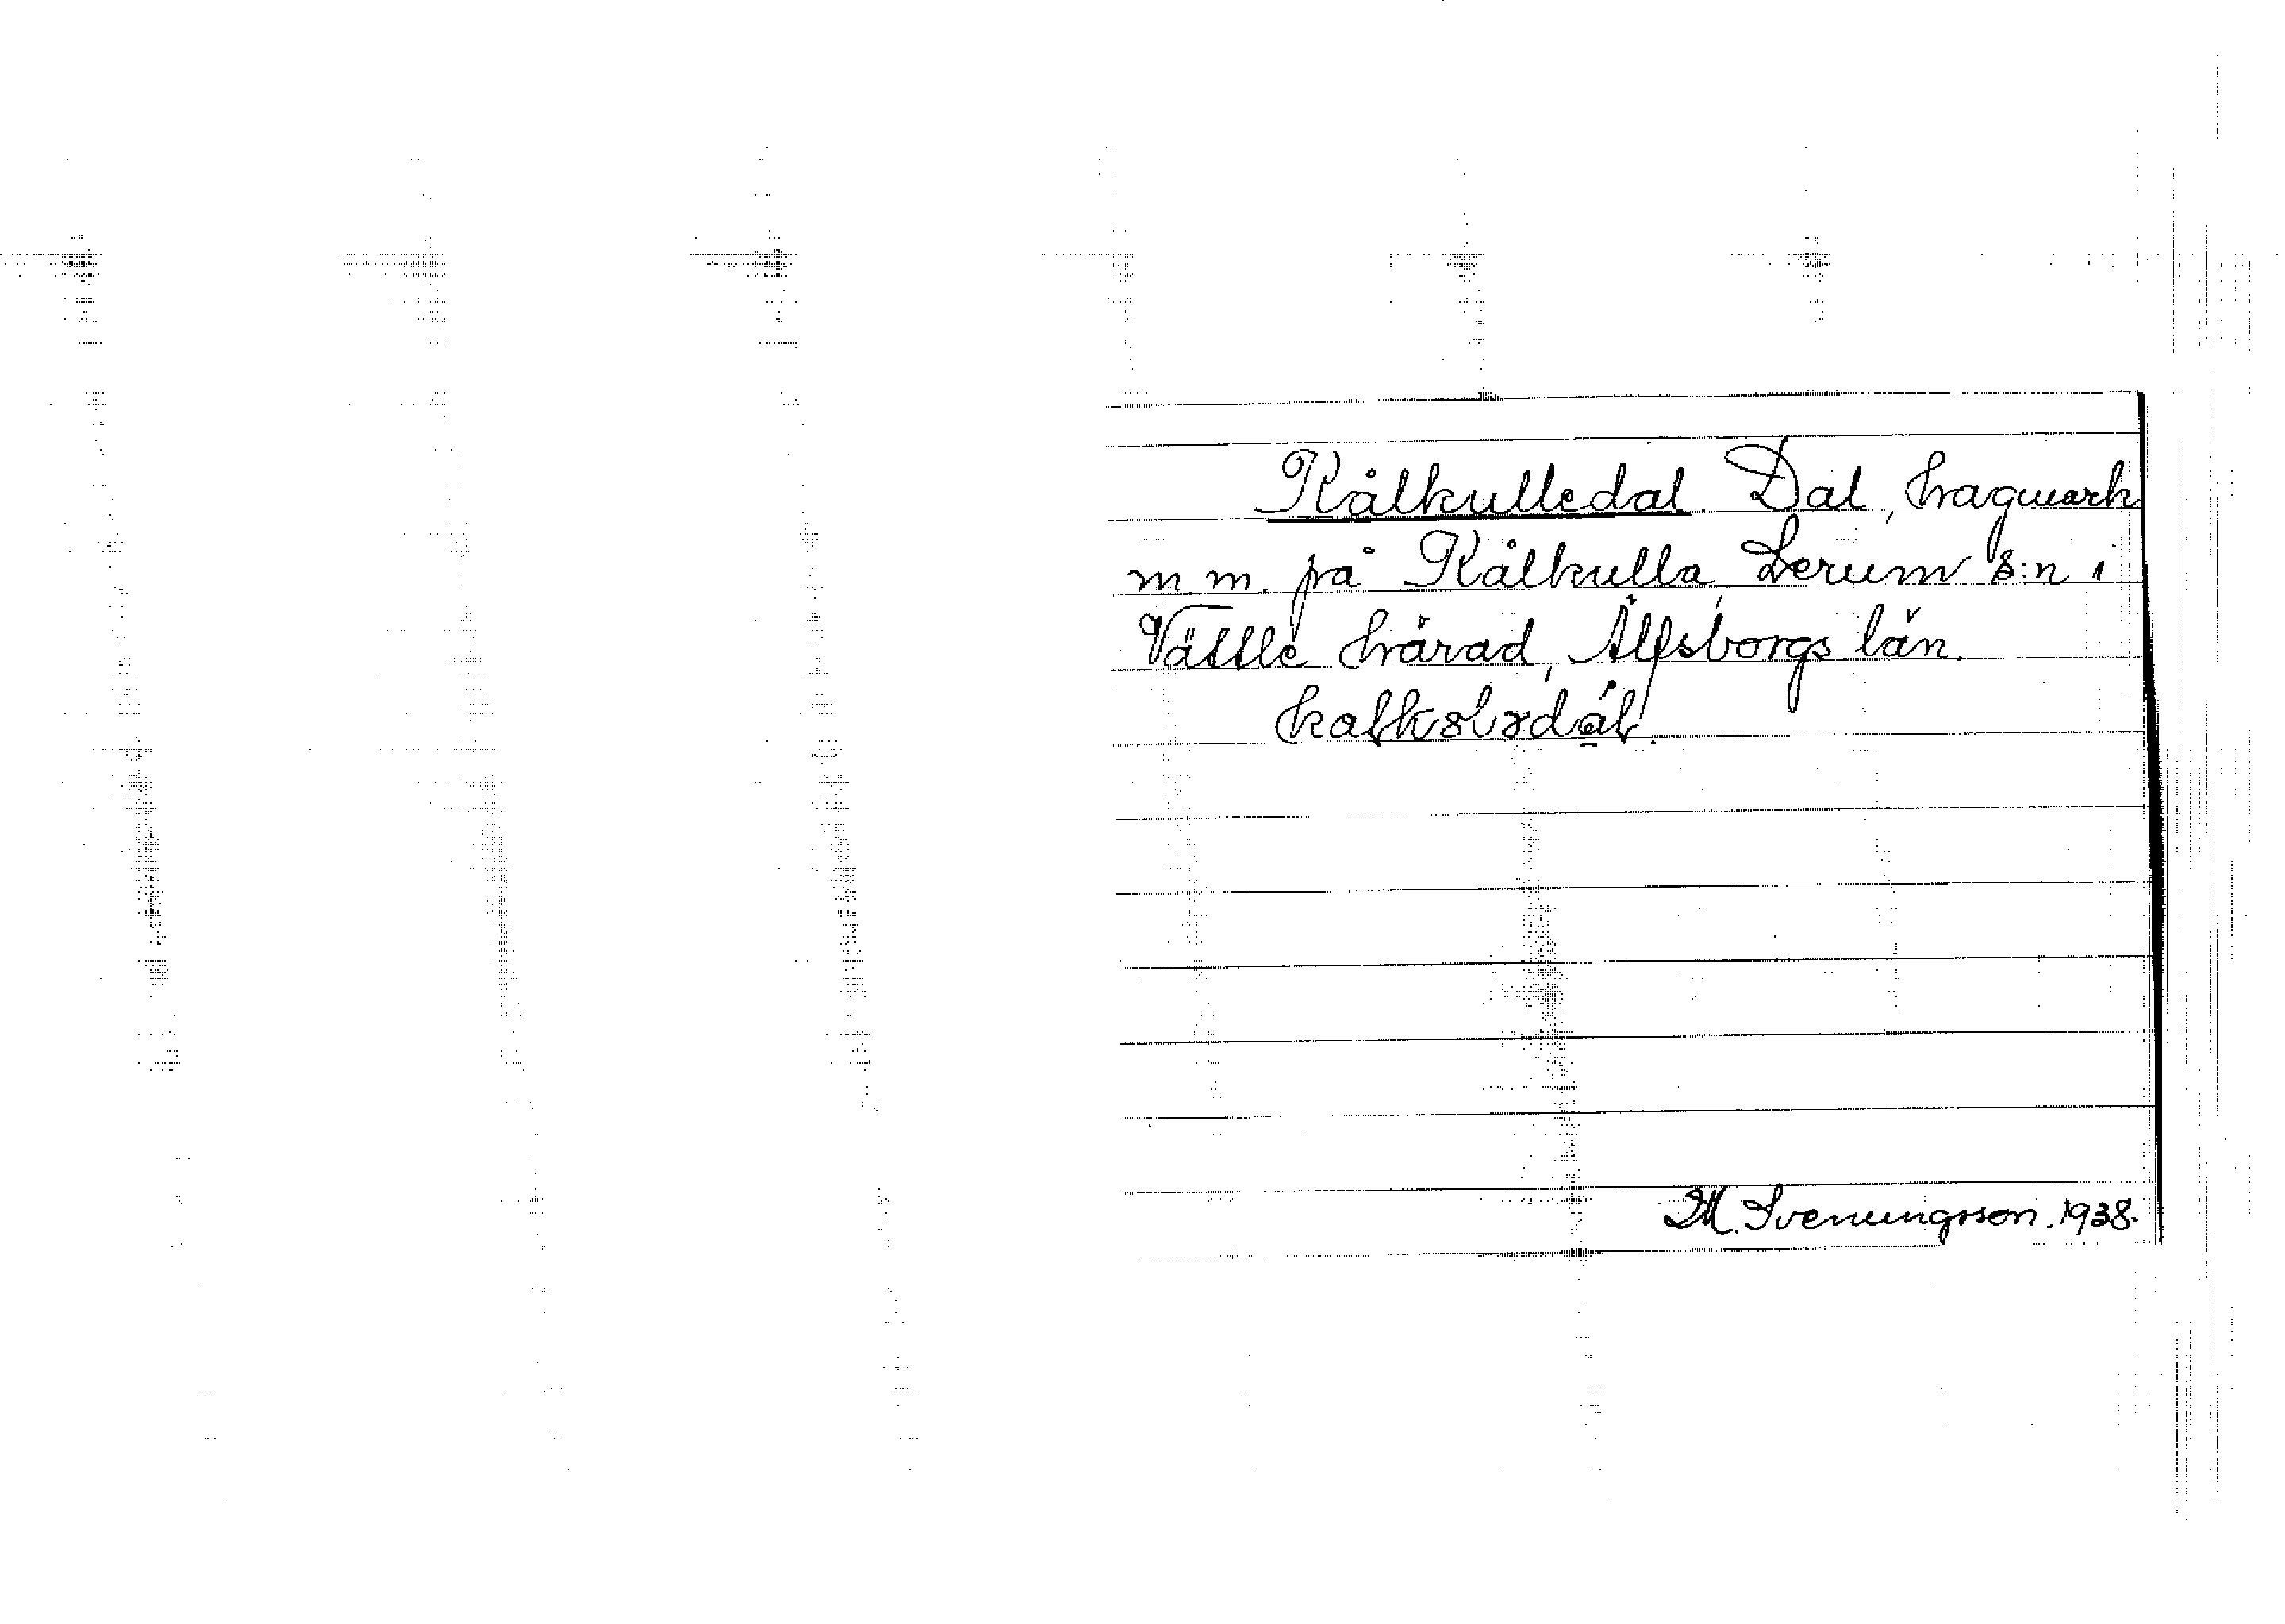 Kålkulledal. Dal, hagmark
m.m. på Kålkulla, Lerum s:n i
Vättle härad, Älfsborgs län.
M. Svenungsson. 1938.